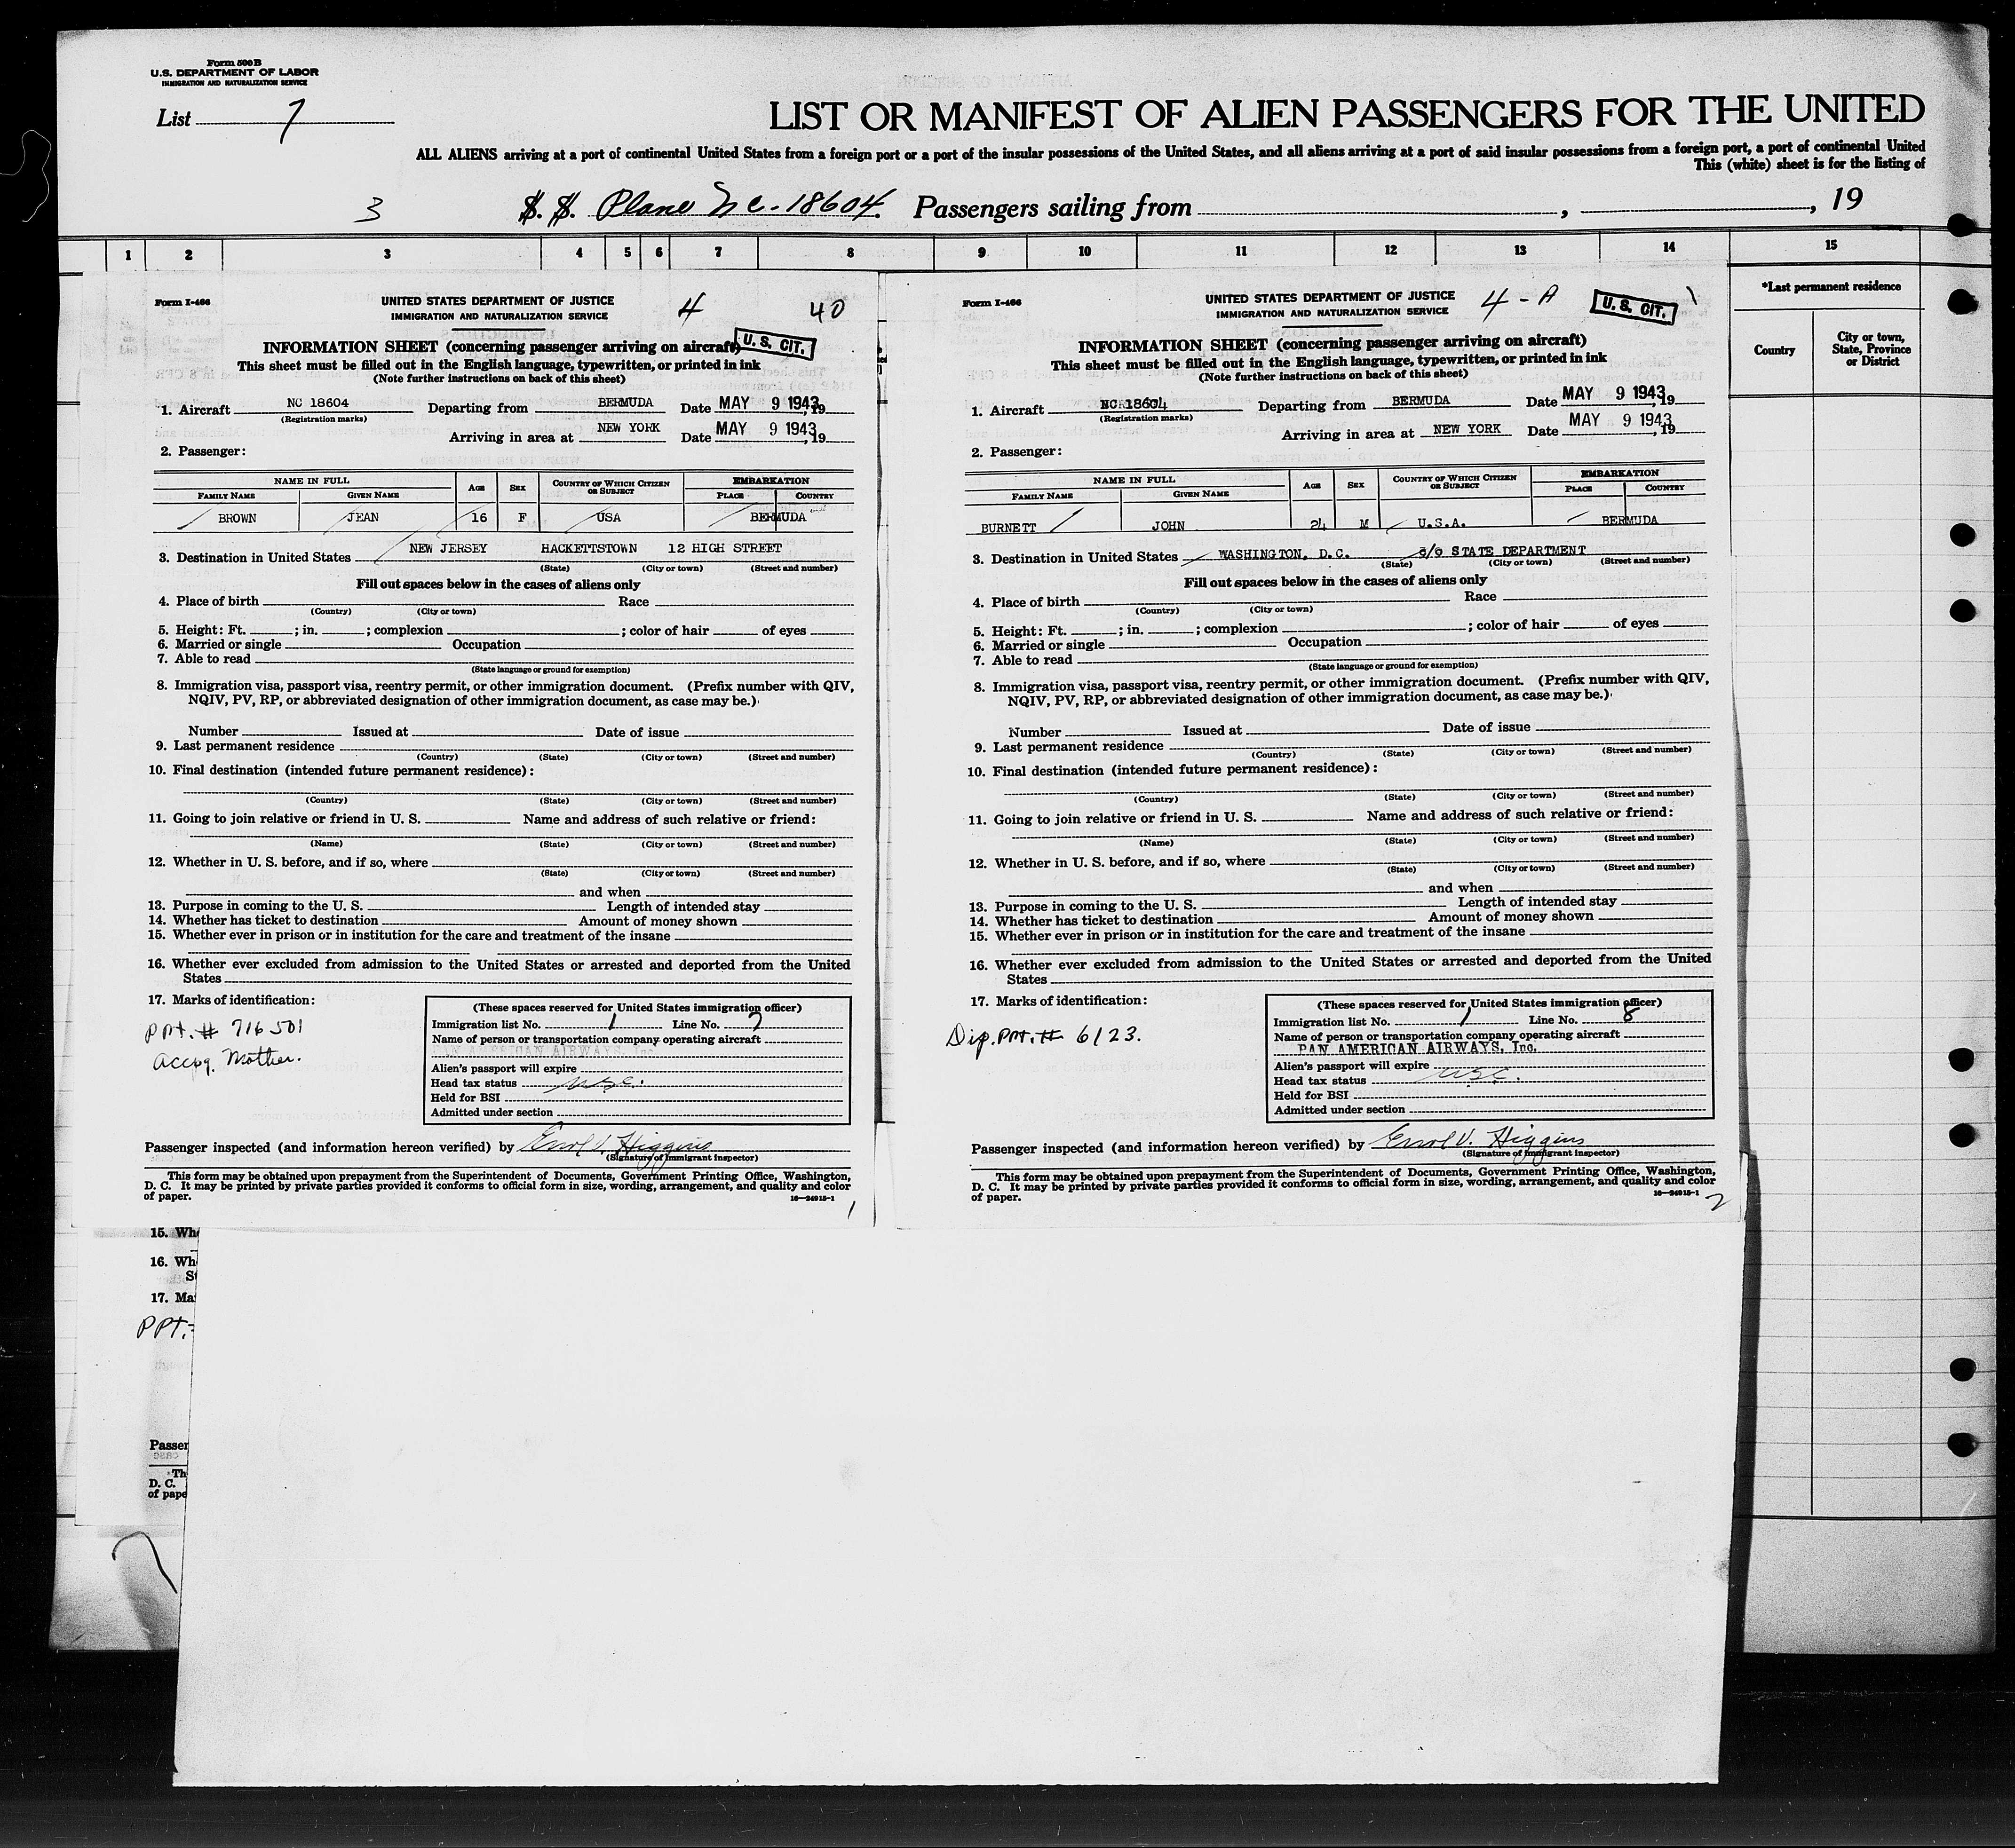 Form 500 B
U.S. DEPARTMENT OF LABOR
IMMIGRATION AND NATURALIZATION SERVICE
List 7
LIST OR MANIFEST OF ALIEN PASSENGERS FOR THE UNITED
ALL ALIENS arriving at a port of continental United States from a foreign port or a port of the insular possessions of the United States, and all aliens arriving at a port of said insular possessions from a foreign port, a port of continental United
This (white) sheet is for the listing of
3 S. S. Plane Nc-18604. Passengers sailing from , , 19
1 2 3 4 5 6 7 8 9 10 11 12 13 14 15
*Last permanent residence
Country
City or town, State, Province or District
Form I-466
UNITED STATES DEPARTMENT OF JUSTICE 4 40
IMMIGRATION AND NATURALIZATION SERVICE
U. S. CIT.
INFORMATION SHEET (concerning passenger arriving on aircraft)
This sheet must be filled out in the English language, typewritten, or printed in ink
(Note further instructions on back of this sheet)
1. Aircraft NC 18604 Departing from BERMUDA Date MAY 9 1943, 19
(Registration marks)
Arriving in area at NEW YORK Date MAY 9 1943, 19
2. Passenger:
NAME IN FULL AGE SEX COUNTRY OF WHICH CITIZEN OR SUBJECT EMBARKATION
FAMILY NAME GIVEN NAME PLACE COUNTRY
BROWN JEAN 16 F USA BERMUDA
3. Destination in United States NEW JERSEY HACKETTSTOWN 12 HIGH STREET
(State) (City or town) (Street and number)
Fill out spaces below in the cases of aliens only
4. Place of birth Race
(Country) (City or town)
5. Height: Ft. ; in. ; complexion ; color of hair of eyes
6. Married or single Occupation
7. Able to read
(State language or ground for exemption)
8. Immigration visa, passport visa, reentry permit, or other immigration document. (Prefix number with QIV,
NQIV, PV, RP, or abbreviated designation of other immigration document, as case may be.)
Number Issued at Date of issue
9. Last permanent residence
(Country) (State) (City or town) (Street and number)
10. Final destination (intended future permanent residence):
(Country) (State) (City or town) (Street and number)
11. Going to join relative or friend in U. S. Name and address of such relative or friend:
(Name) (State) (City or town) (Street and number)
12. Whether in U. S. before, and if so, where
(State) (City or town) (Street and number)
and when
13. Purpose in coming to the U. S. Length of intended stay
14. Whether has ticket to destination Amount of money shown
15. Whether ever in prison or in institution for the care and treatment of the insane
16. Whether ever excluded from admission to the United States or arrested and deported from the United
States
17. Marks of identification:
PPt. # 716501
Accpg. Mother.
(These spaces reserved for United States immigration officer)
Immigration list No. 1 Line No. 7
Name of person or transportation company operating aircraft
PAN AMERICAN AIRWAYS, Inc.
Alien's passport will expire
Head tax status USC.
Held for BSI
Admitted under section
Passenger inspected (and information hereon verified) by Errol V. Higgins
(Signature of immigrant inspector)
This form may be obtained upon prepayment from the Superintendent of Documents, Government Printing Office, Washington,
D. C. It may be printed by private parties provided it conforms to official form in size, wording, arrangement, and quality and color
of paper. 16—24915-1
1
Form I-466
UNITED STATES DEPARTMENT OF JUSTICE 4-A
IMMIGRATION AND NATURALIZATION SERVICE
U. S. CIT.
INFORMATION SHEET (concerning passenger arriving on aircraft)
This sheet must be filled out in the English language, typewritten, or printed in ink
(Note further instructions on back of this sheet)
1. Aircraft NC 18604 Departing from BERMUDA Date MAY 9 1943, 19
(Registration marks)
Arriving in area at NEW YORK Date MAY 9 1943, 19
2. Passenger:
NAME IN FULL AGE SEX COUNTRY OF WHICH CITIZEN OR SUBJECT EMBARKATION
FAMILY NAME GIVEN NAME PLACE COUNTRY
BURNETT JOHN 24 M U.S.A. BERMUDA
3. Destination in United States WASHINGTON, D.C. c/o STATE DEPARTMENT
(State) (City or town) (Street and number)
Fill out spaces below in the cases of aliens only
4. Place of birth Race
(Country) (City or town)
5. Height: Ft. ; in. ; complexion ; color of hair of eyes
6. Married or single Occupation
7. Able to read
(State language or ground for exemption)
8. Immigration visa, passport visa, reentry permit, or other immigration document. (Prefix number with QIV,
NQIV, PV, RP, or abbreviated designation of other immigration document, as case may be.)
Number Issued at Date of issue
9. Last permanent residence
(Country) (State) (City or town) (Street and number)
10. Final destination (intended future permanent residence):
(Country) (State) (City or town) (Street and number)
11. Going to join relative or friend in U. S. Name and address of such relative or friend:
(Name) (State) (City or town) (Street and number)
12. Whether in U. S. before, and if so, where
(State) (City or town) (Street and number)
and when
13. Purpose in coming to the U. S. Length of intended stay
14. Whether has ticket to destination Amount of money shown
15. Whether ever in prison or in institution for the care and treatment of the insane
16. Whether ever excluded from admission to the United States or arrested and deported from the United
States
17. Marks of identification:
Dip. PPt. # 6123.
(These spaces reserved for United States immigration officer)
Immigration list No. 1 Line No. 8
Name of person or transportation company operating aircraft
PAN AMERICAN AIRWAYS, Inc.
Alien's passport will expire
Head tax status USC.
Held for BSI
Admitted under section
Passenger inspected (and information hereon verified) by Errol V. Higgins
(Signature of immigrant inspector)
This form may be obtained upon prepayment from the Superintendent of Documents, Government Printing Office, Washington,
D. C. It may be printed by private parties provided it conforms to official form in size, wording, arrangement, and quality and color
of paper. 16—24915-1
2
15. Wh
16. Wh
St
17. Ma
PPT.
Passen
Th
D. C.
of pape